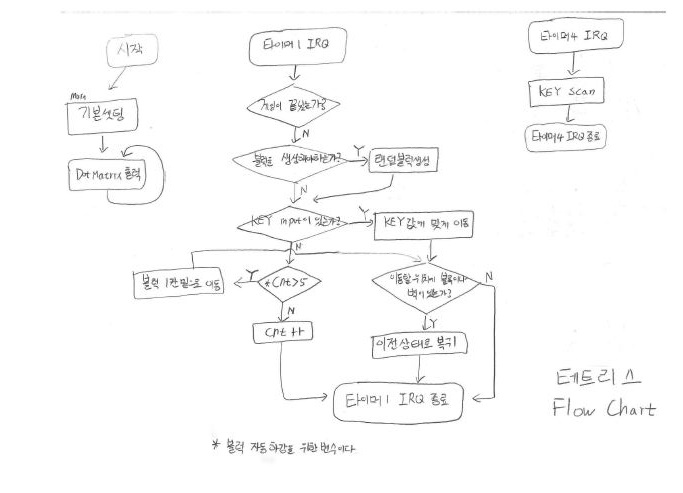 시작
Main
기본셋팅
Dot Matrix 출력
타이머 1 IRQ
게임이 끝났는가?
N
블럭을 생성해야하는가?
Y
랜덤블럭생성
N
KEY input이 있는가?
Y
KEY값에 맞게 이동
N
블럭 1칸밑으로 이동
Y
*Cnt>5
N
Cnt ++
이동할 위치에 블록이나
벽이 있는가?
N
Y
이전상태로 복귀
타이머 1 IRQ 종료
타이머4 IRQ
KEY Scan
타이머4 IRQ 종료
테트리스
Flow Chart
* 블럭 자동하강을 위한 변수이다